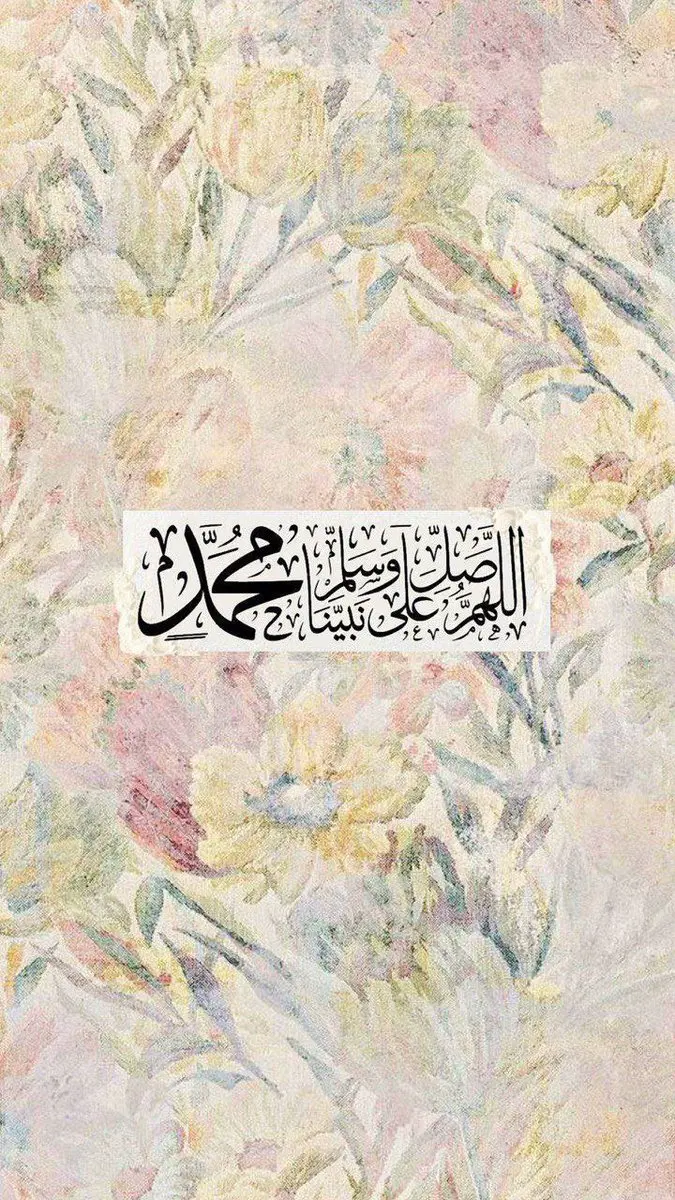 اللهمَّ صَلِّ وَسَلِّم عَلَى نَبِيِّنَا مُحَمَّد